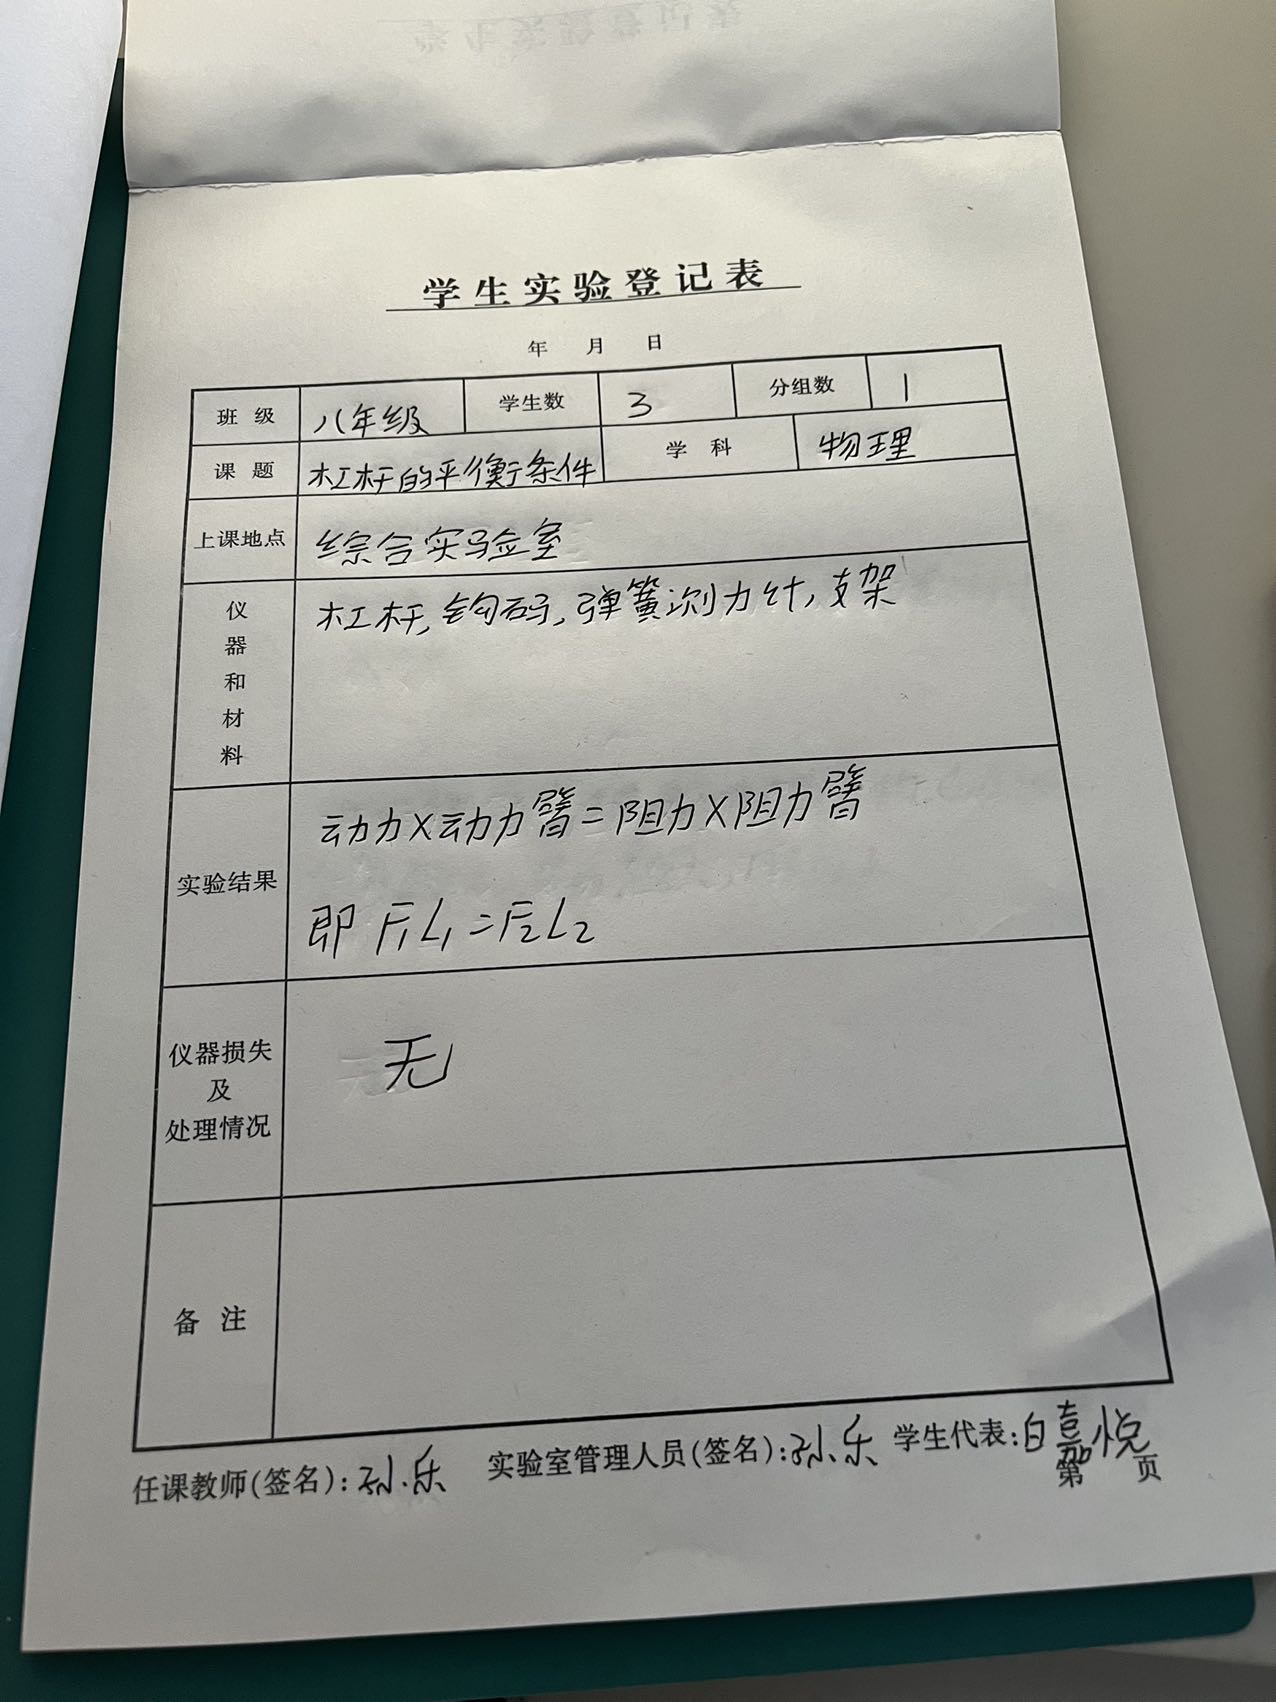 学生实验登记表
年 月 日
班级 八年级 学生数 3 分组数 1
课题 杠杆的平衡条件 学科 物理
上课地点 综合实验室
仪器和材料 杠杆,钩码,弹簧测力计,支架
实验结果 动力×动力臂=阻力×阻力臂
即 F₁L₁=F₂L₂
仪器损失及处理情况 无
备注
任课教师(签名):孙乐 实验室管理人员(签名):孙乐 学生代表:白嘉悦
第 页